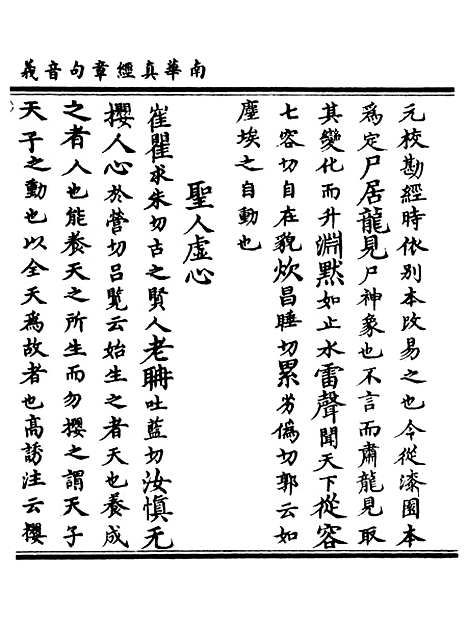 南華真經章句音義
元校勘經時依別本改易之也今從漆園本
爲定尸居龍見尸神象也不言而肅龍見取
其變化而升淵默如止水雷聲聞天下從容
七容切自在貌炊昌睡切累劣僞切郭云如
塵埃之自動也
聖人虛心
崔瞿求朱切古之賢人老聃吐藍切汝慎无
攖人心於營切呂覽云始生之者天也養成
之者人也能養天之所生而勿攖之謂天子
天子之動也以全天爲故者也高誘注云攖